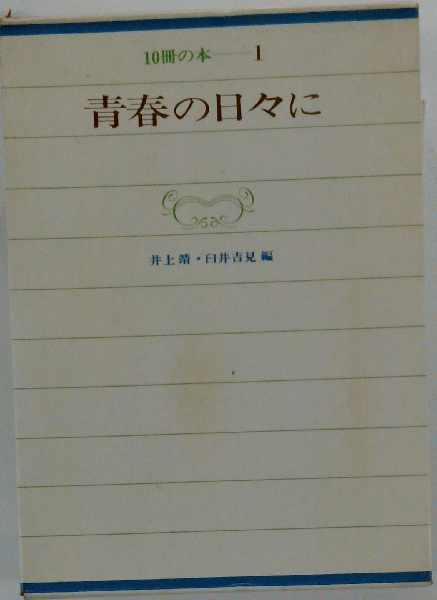 10冊の本——1
青春の日々に
井上靖・臼井吉見 編